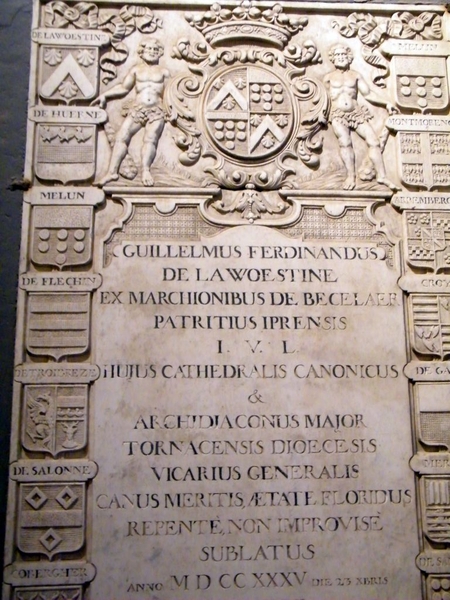 DE LAWOESTINE
DE HUEFNE
MELUN
DE FLECHIN
DE SALONNE
COBERGHER
MELUN
MONTMORENC
GUILLELMUS FERDINANDUS
DE LAWOESTINE
EX MARCHIONIBUS DE BECELAER
PATRITIUS IPRENSIS
I. V. L
HUJUS CATHEDRALIS CANONICUS
&
ARCHIDIACONUS MAJOR
TORNACENSIS DIOECESIS
VICARIUS GENERALIS
CANUS MERITIS, ÆTATE FLORIDUS
REPENTÈ, NON IMPROVISÈ
SUBLATUS
ANNO M D CC XXXV DIE 23 XBRIS